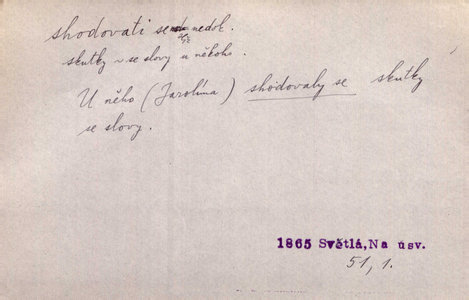 shodovati se nedok.
skutky ~ se slovy u někoho.
U něho (Jarolíma) shodovaly se skutky
se slovy.
1865 Světlá, Na úsv.
51, 1.